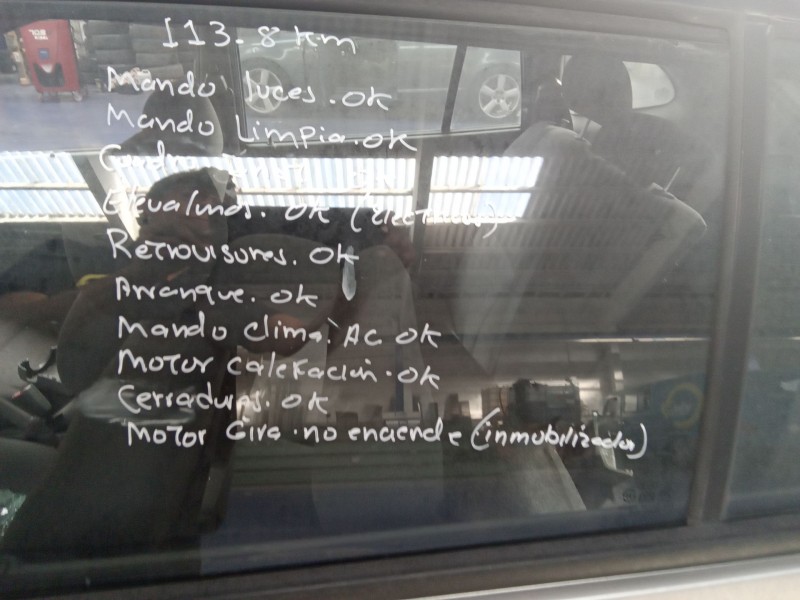 113.8 Km
Mando luces. OK
Mando Limpia. OK
Cuadro OK
Elevalunas. OK (Electricos)
Retrovisores. OK
Arranque. OK
Mando Clima. AC OK
Motor Calefacion. OK
Cerraduras. OK
Motor Gira. no enciende (inmobilizador)